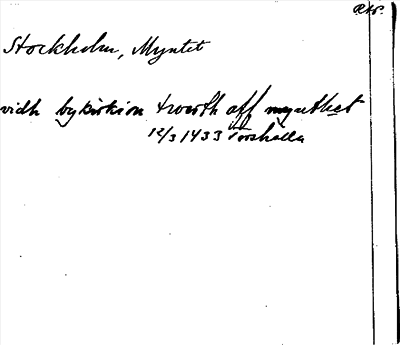 Stockholm, Myntet
vidh bykirkion twerth aff mynthet
12/3 1433 Torshälla